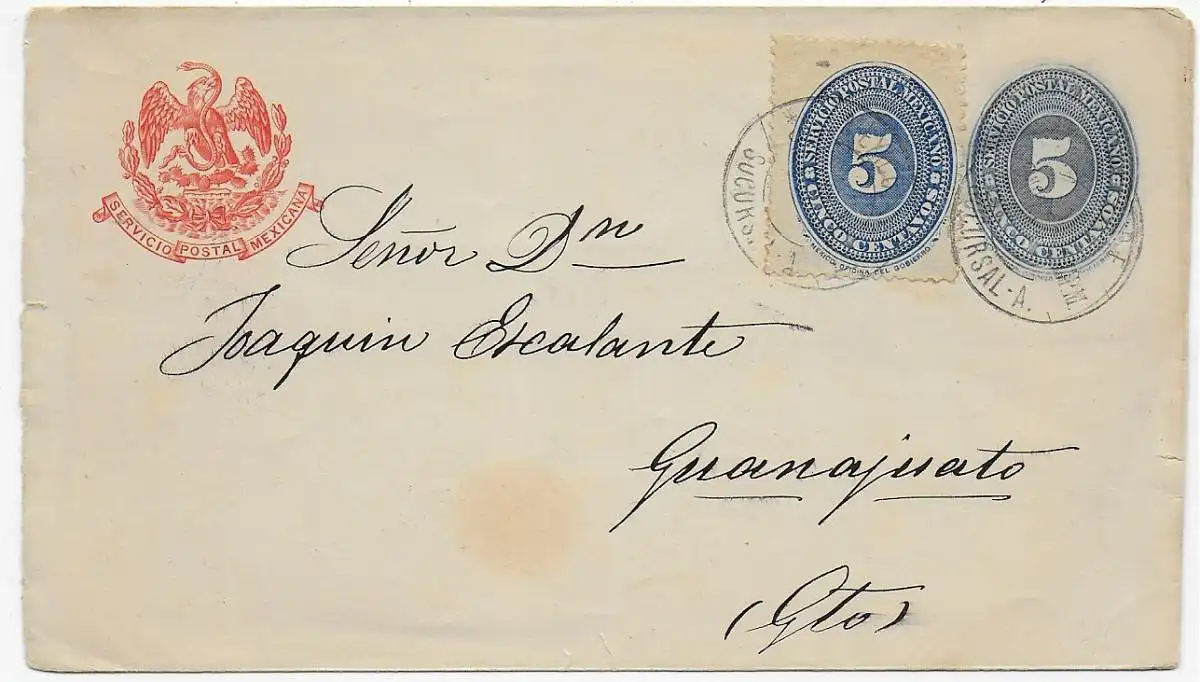 SERVICIO POSTAL MEXICANA
SERVICIO POSTAL MEXICANO
5
CINCO CENTAVOS
MEXICO, OFICINA DEL GOBIERNO
SERVICIO POSTAL MEXICANO
5
CINCO CENTAVOS
SUCURS
A
URSAL-A.
Señor Dn
Joaquin Escalante
Guanajuato
(Gto)